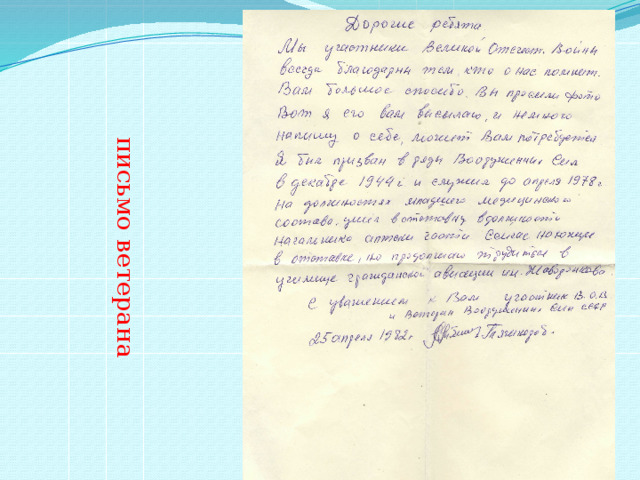 письмо ветерана
Дорогие ребята
Мы участники Великой Отечют. Войны
всегда благодарны тем, кто о нас помнит.
Вам большое спосибо. Вы просили фото
Вот я его вам высылаю, и немного
напишу о себе, может Вам потребуется
Я был призван в ряды Вооруженных Сил
в декабре 1944 г и служил до апреля 1978 г
на должностях младшего медицинского
состава, ушел в отставку с должности
начальника аптеки части Сейчас нахожусь
в отставке, но продолжаю трудится в
училище гражданской авиации им.
С уважением к Вам участник В.О.В
и Ветеран Вооруженных Сил СССР
25 апреля 1982 г